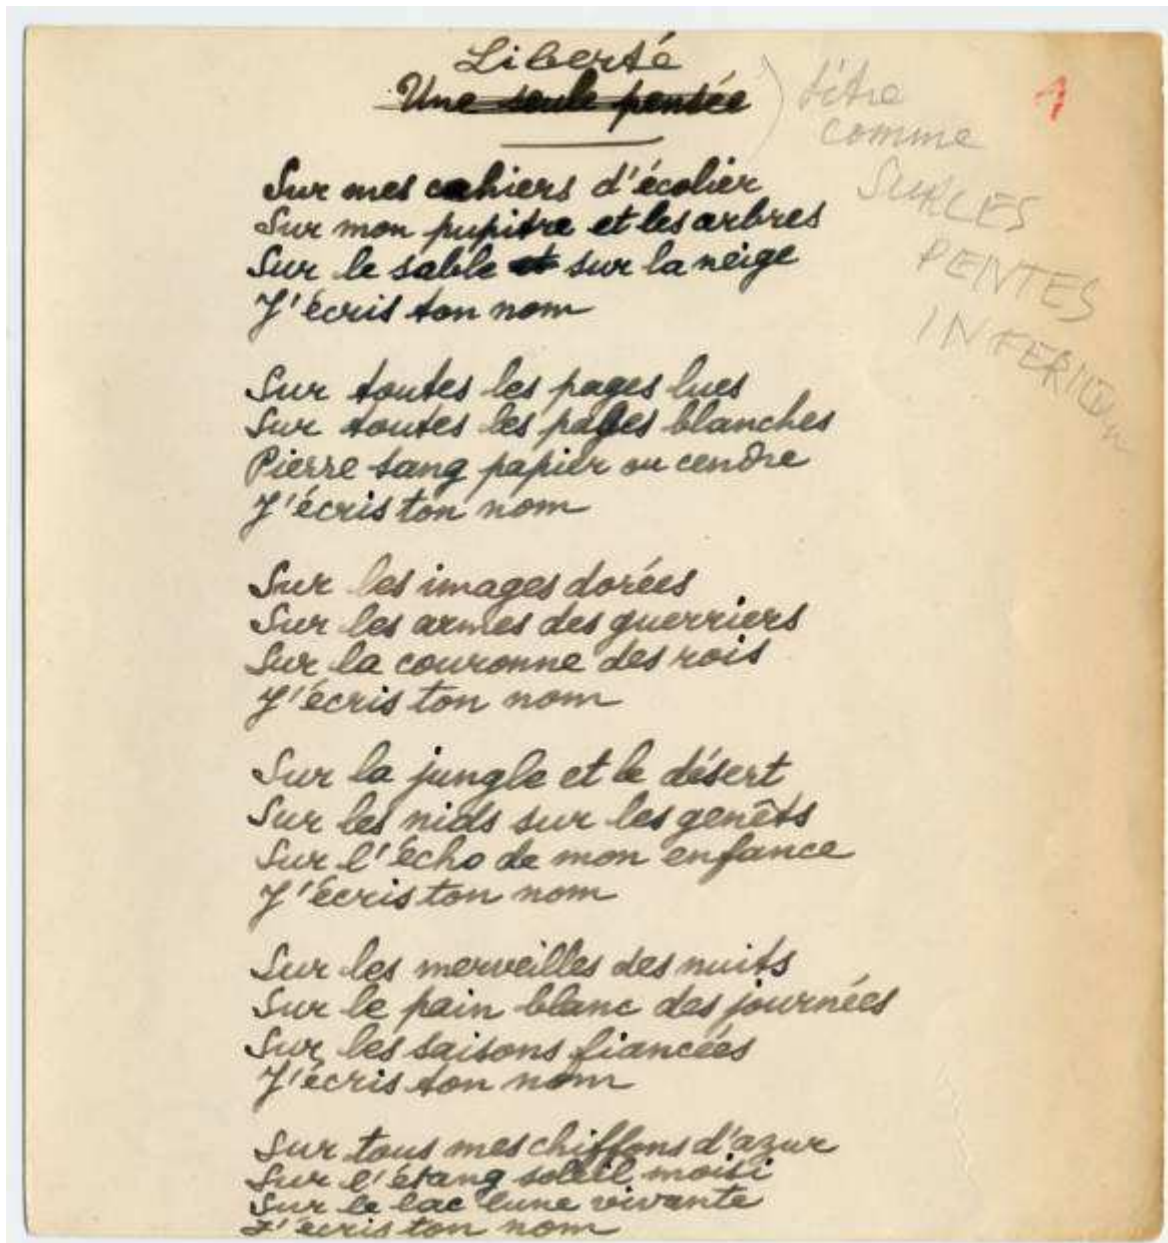 Liberté
Une seule pensée
) titre
comme
SUR LES
PENTES
INFERIEU
1
Sur mes cahiers d'écolier
Sur mon pupitre et les arbres
Sur le sable et sur la neige
J'écris ton nom
Sur toutes les pages lues
Sur toutes les pages blanches
Pierre sang papier ou cendre
J'écris ton nom
Sur les images dorées
Sur les armes des guerriers
Sur la couronne des rois
J'écris ton nom
Sur la jungle et le désert
Sur les nids sur les genêts
Sur l'écho de mon enfance
J'écris ton nom
Sur les merveilles des nuits
Sur le pain blanc des journées
Sur les saisons fiancées
J'écris ton nom
Sur tous mes chiffons d'azur
Sur l'étang soleil moisi
Sur le lac lune vivante
J'écris ton nom